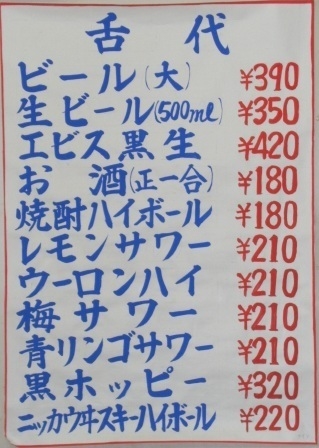 舌代
ビール(大) ¥390
生ビール(500ml) ¥350
エビス黒生 ¥420
お酒(正一合) ¥180
焼酎ハイボール ¥180
レモンサワー ¥210
ウーロンハイ ¥210
梅サワー ¥210
青リンゴサワー ¥210
黒ホッピー ¥320
ニッカウヰスキーハイボール ¥220